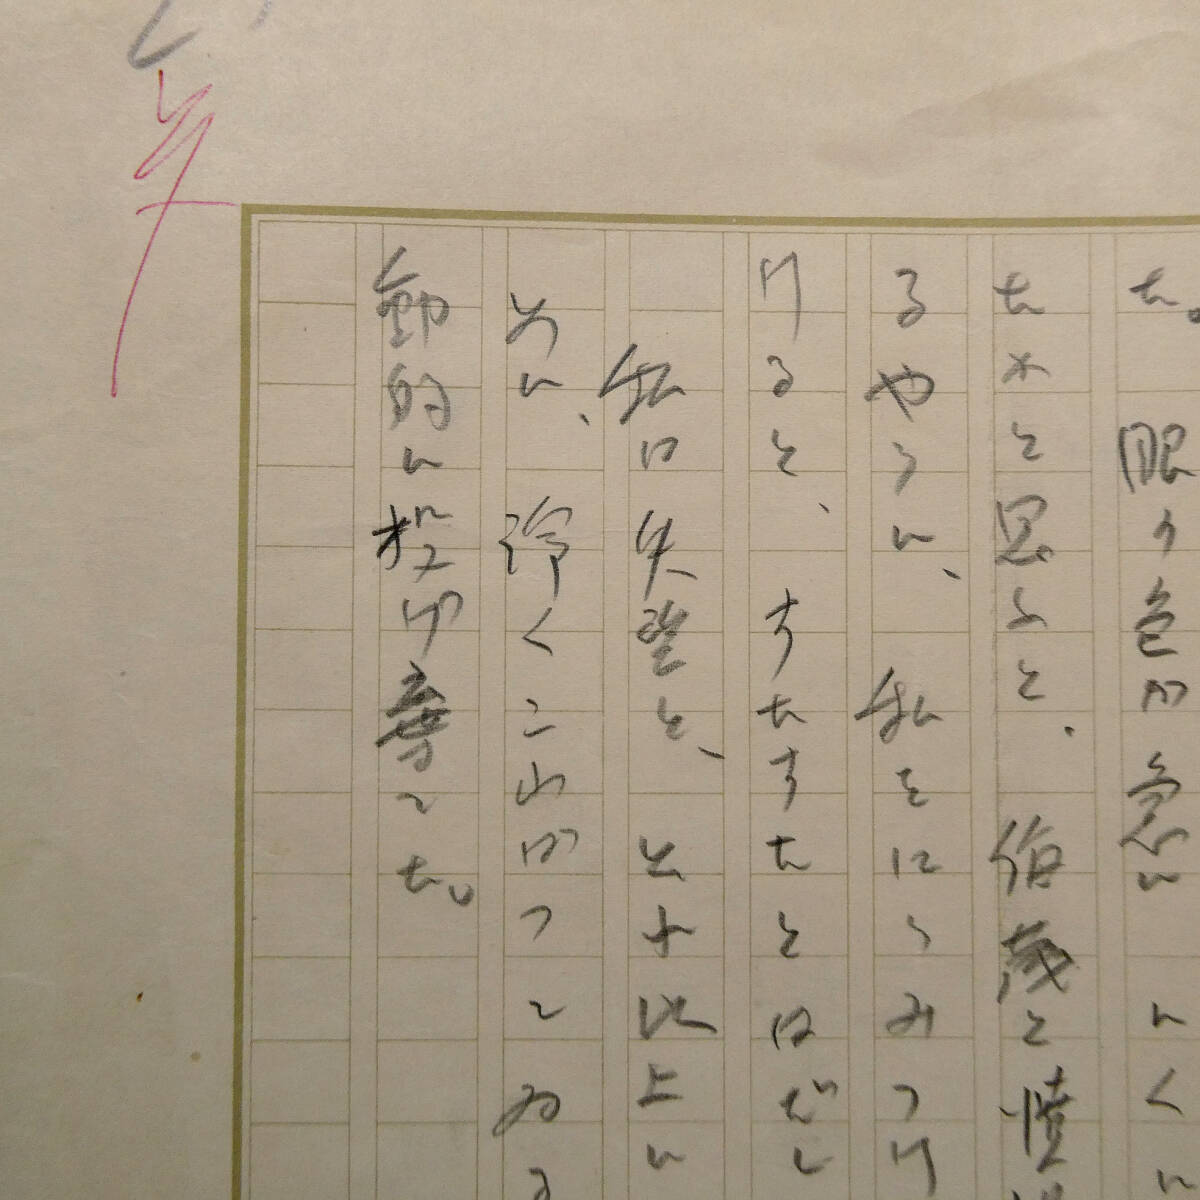 た。眼の色が急に にくに
たかと思ふと、侮蔑と憤
るやうに、私をにらみつけ
けると、すたすたとはだし
私は失望と、それ以上に
めに、冷くこはばつてゐる
動的に投げ棄てた。